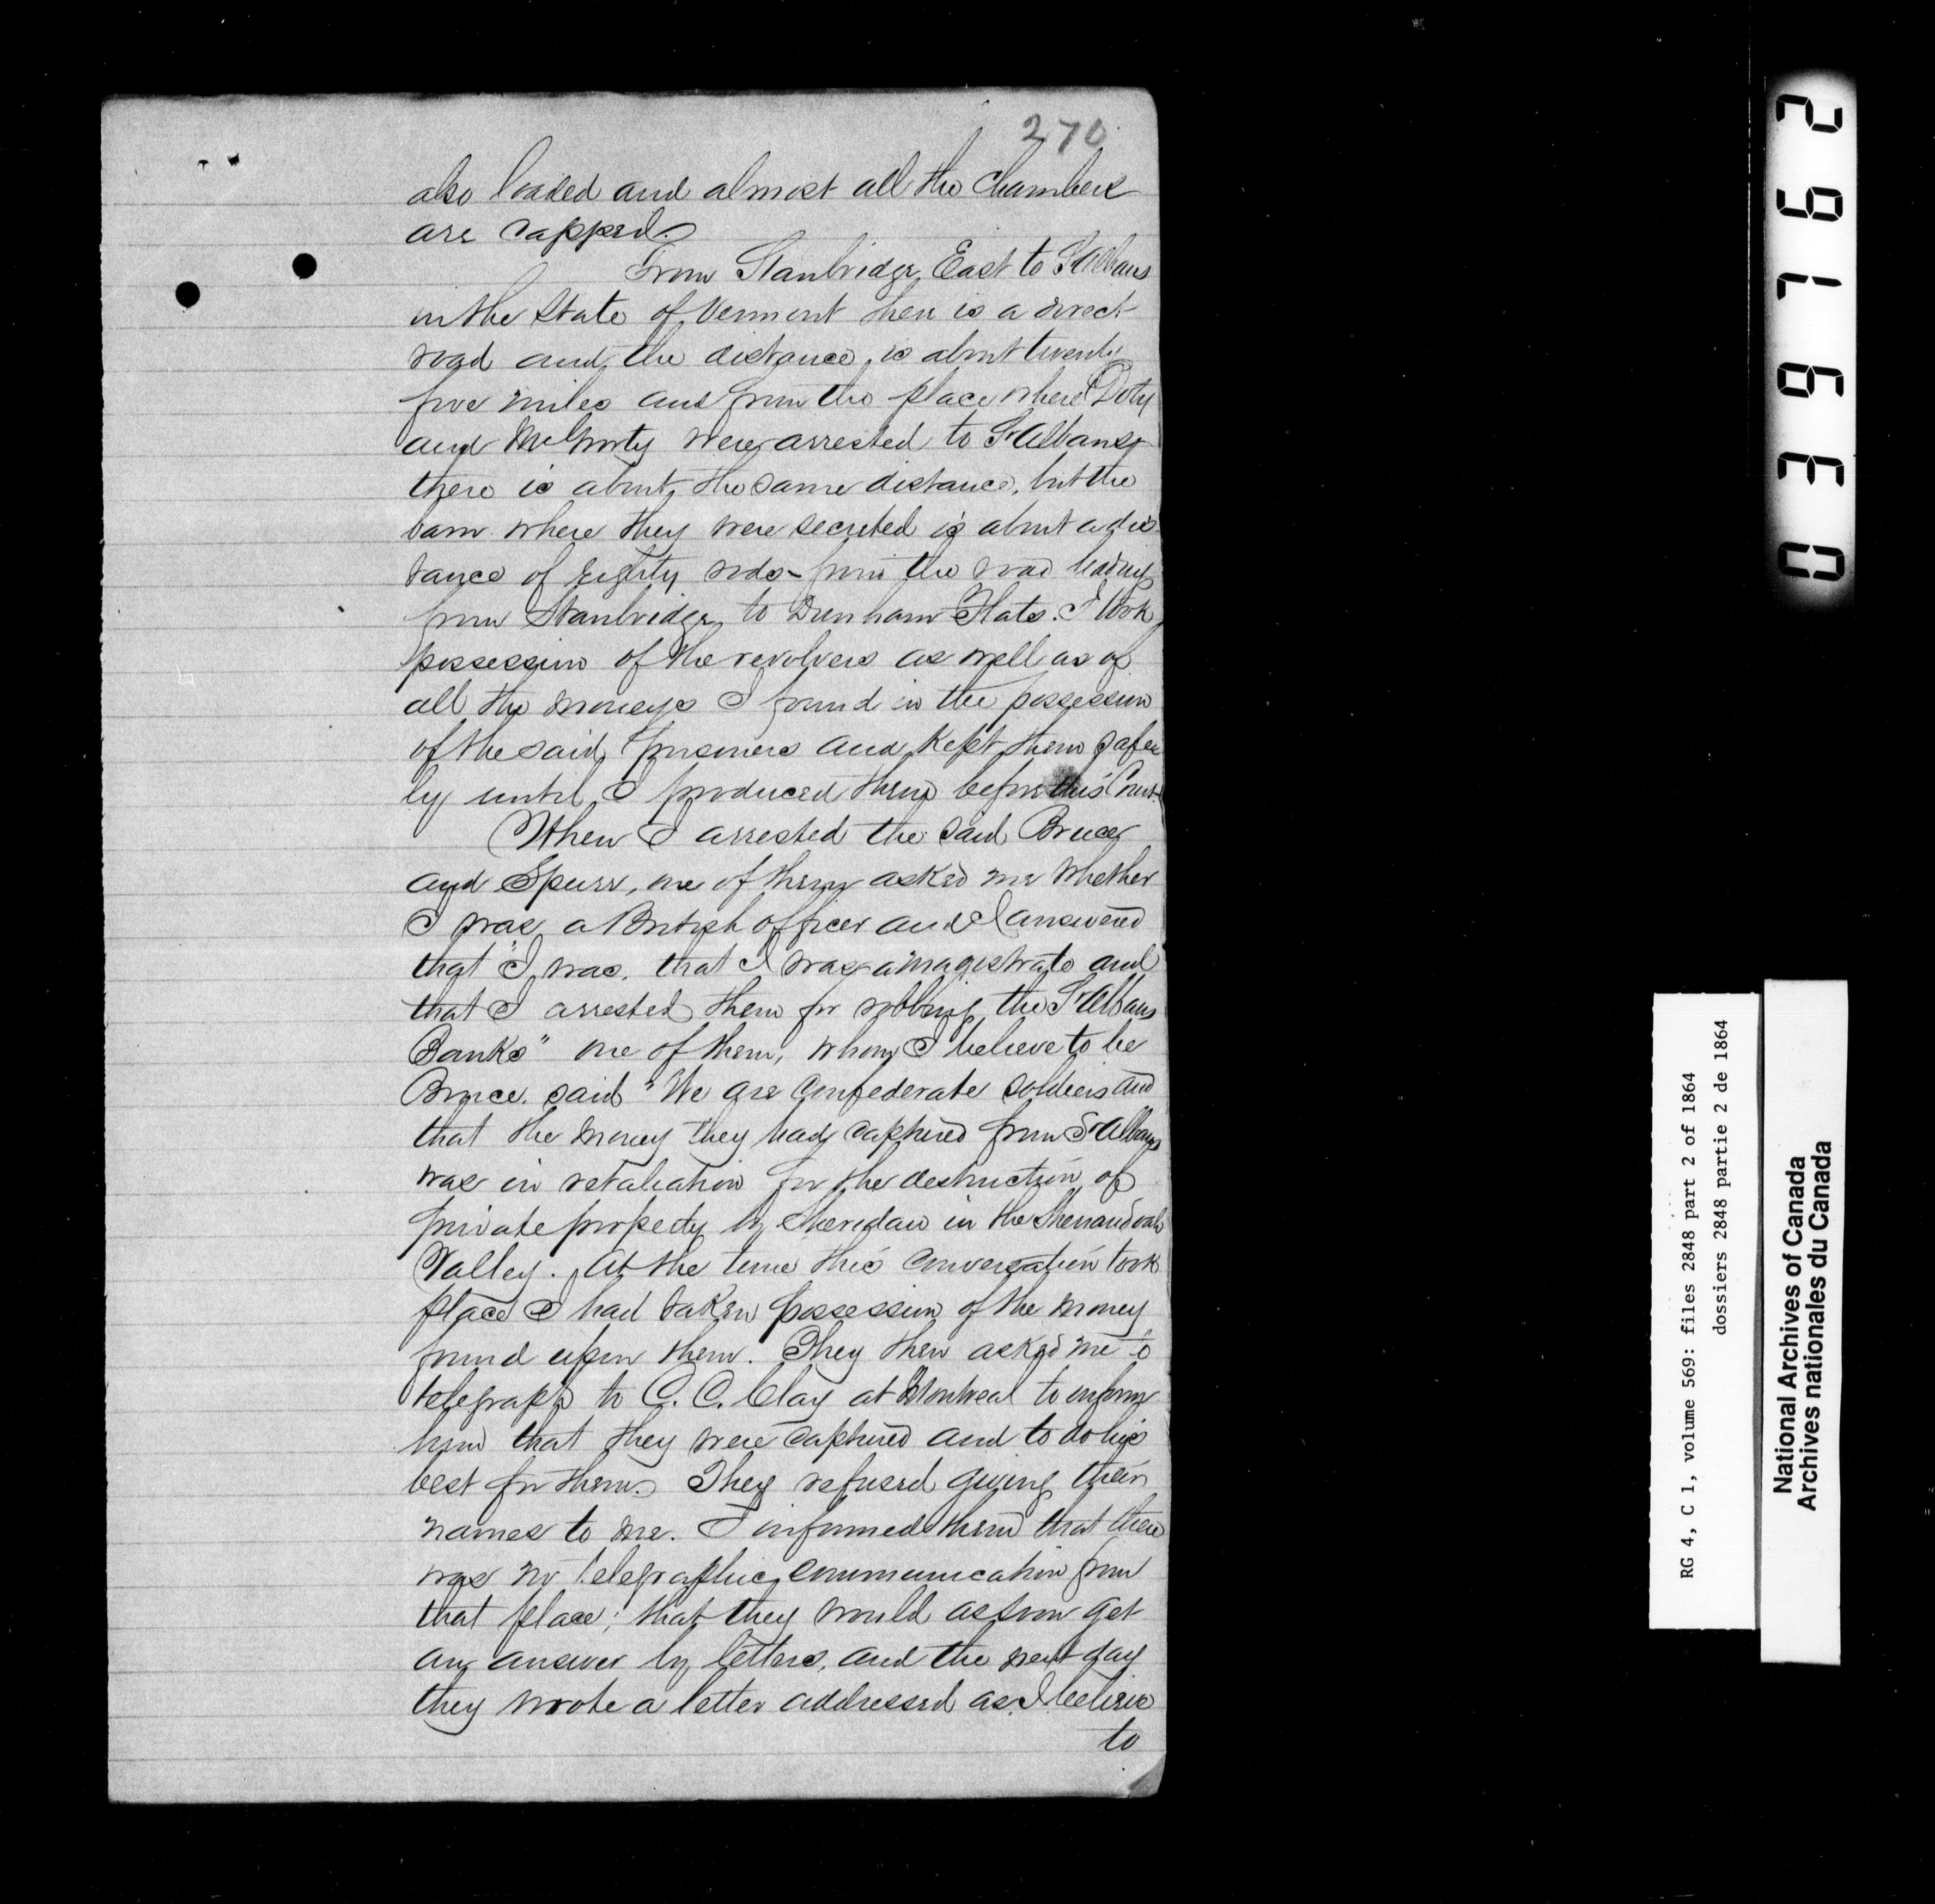 270
also loaded and almost all the chambers
are capped.
From Stanbridge East to St Albans
in the State of Vermont there is a direct
road and the distance is about twenty
five miles and from the place where Doty
and McGrorty were arrested to St Albans
there is about the same distance, but the
barn where they were secreted is about a dis
tance of eighty rods from the road leading
from Stanbridge to Dunham Flats. I took
possession of the revolvers as well as of
all the moneys I found in the possession
of the said prisoners and kept them safe
ly until I produced them before this Court.
When I arrested the said Bruce
and Spurr, one of them asked me whether
I was a British officer and I answered
that "I was, that I was a magistrate and
that I arrested them for robbing the St Albans
Banks" one of them, whom I believe to be
Bruce, said "We are Confederate soldiers and
that the money they had captured from St Albans
was in retaliation for the destruction of
private property by Sheridan in the Shenandoah
Valley. At the time this conversation took
place I had taken possession of the money
found upon them. They then asked me to
telegraph to C. C. Clay at Montreal to inform
him that they were captured and to do his
best for them. They refused giving their
names to me. I informed them that there
was no telegraphic communication from
that place; that they would as soon get
an answer by letters, and the next day
they wrote a letter addressed as I believe
to
039762
RG 4, C 1, volume 569: files 2848 part 2 of 1864
dossiers 2848 partie 2 de 1864
National Archives of Canada
Archives nationales du Canada